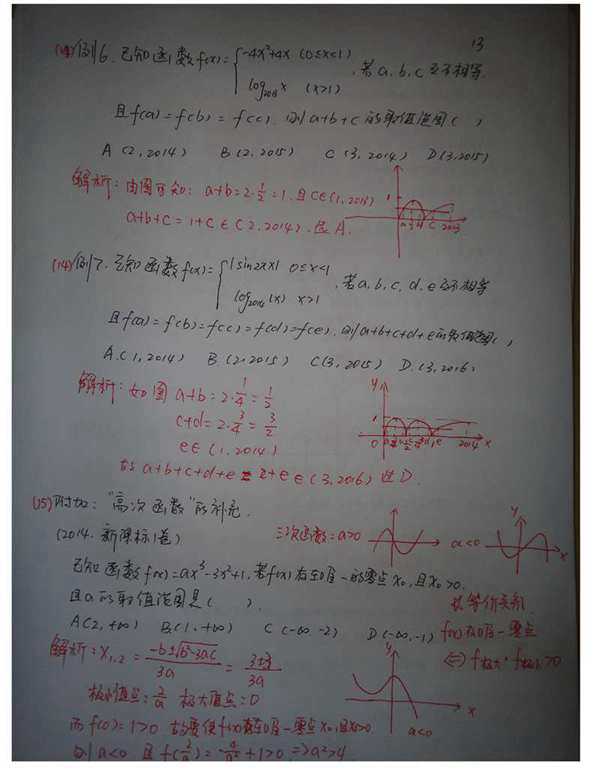 13
(14)例6.已知函数f(x)={-4x²+4x (0≤x<1)
log₂₀₁₃x (x>1) ,若a.b.c互不相等.
且f(a)=f(b)=f(c).则a+b+c的取值范围( )
A(2,2014) B(2,2015) C(3,2014) D(3,2015)
解析:由图可知:a+b=2·1/2=1.且c∈(1,2013)
a+b+c=1+c∈(2,2014).选A.
(14)例7.已知函数f(x)={|sin2πx| 0≤x<1
log₂₀₁₄(x) x>1 ,若a,b,c,d,e互不相等
且f(a)=f(b)=f(c)=f(d)=f(e).则a+b+c+d+e的取值范围( )
A.(1,2014) B.(2,2015) C(3,2015) D.(3,2016)
解析:如图 a+b=2·1/4=1/2
c+d=2·3/4=3/2
e∈(1,2014)
故a+b+c+d+e=2+e∈(3,2016)选D.
(15)附加:"高次函数"的补充.
(2014.新课标1卷) 三次函数:a>0 a<0
已知函数f(x)=ax³-3x²+1,若f(x)存在唯一的零点x₀,且x₀>0.
且a的取值范围是( ).
A(2,+∞) B.(1,+∞) C(-∞,-2) D(-∞,-1)
等价关系
f(x)存在唯一零点
⇔f极大·f极小>0
解析:x₁,₂=(-b±√(b²-3ac))/3a=(3±3)/3a
极小值点:2/a 极大值点:0
a<0
而f(0)=1>0 故要使f(x)存在唯一零点x₀,且x₀>0
则a<0 且f(2/a)=-4/a²+1>0⇒a²>4